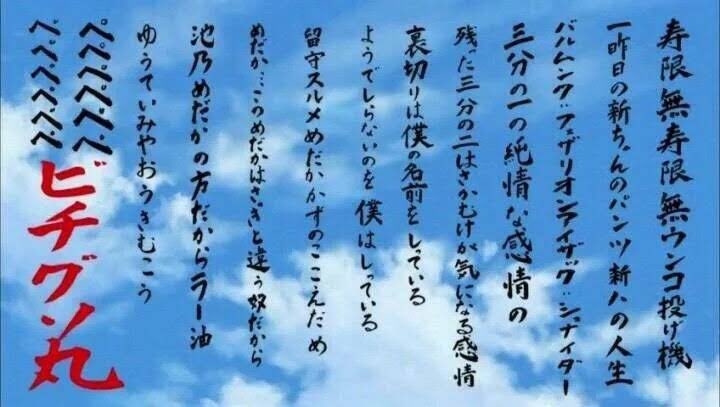 寿限無寿限無ウンコ投げ機
一昨日の新ちゃんのパンツ新八の人生
バルムンク=フェザリオンアイザック=シュナイダー
三分の一の純情な感情の
残った三分の二はさかむけが気になる感情
裏切りは僕の名前をしっている
ようでしらないのを僕はしっている
留守スルメめだかかずのここえだめ
めだか…このめだかはさっきと違う奴だから
池乃めだかの方だからラー油
ゆうていみやおうきむこう
ペペペペペペ
ペペペペペペ
ビチグソ丸